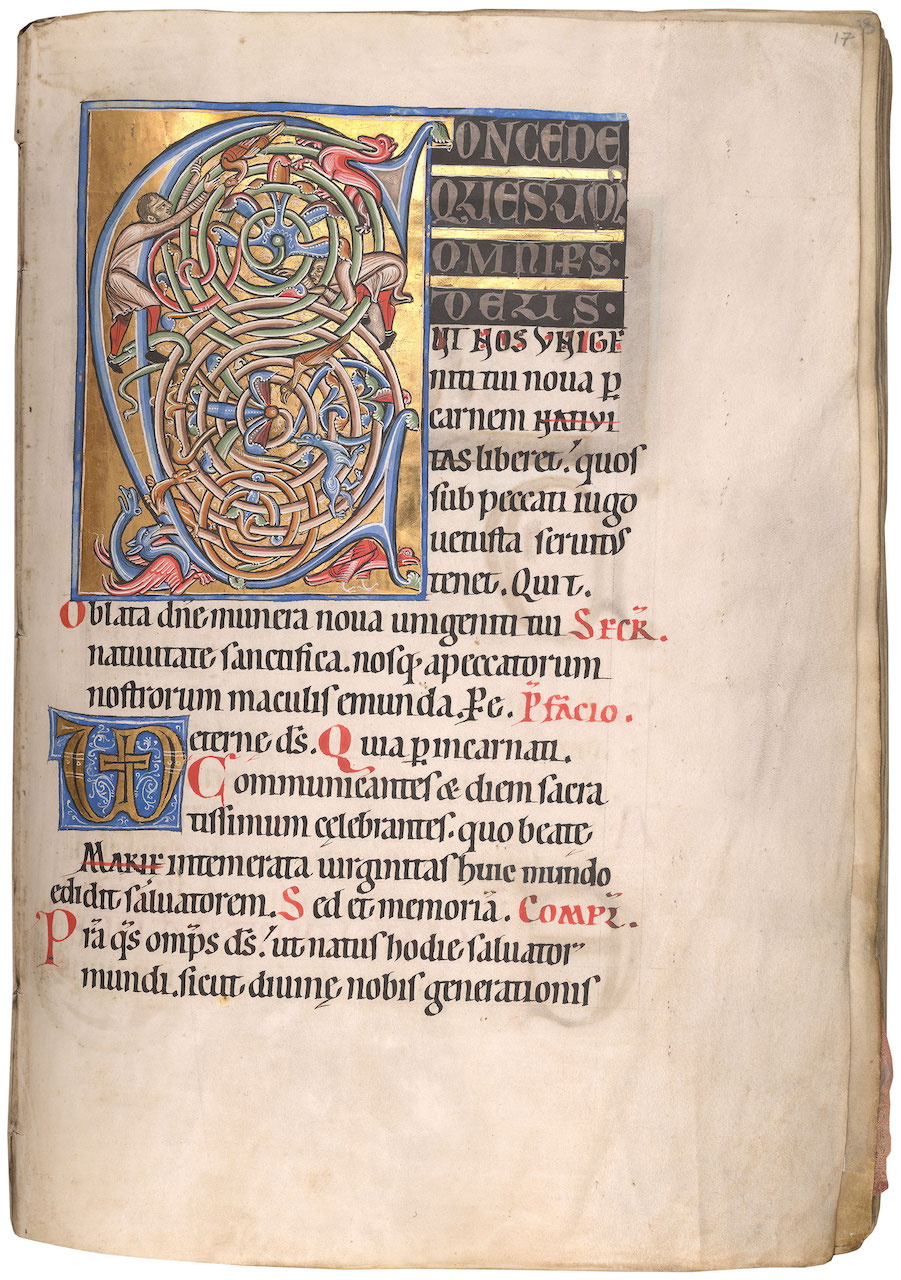 17
CONCEDE
QUESUM̅
OMNIP̅S·
DEUS·
UT NOS UNIGE
niti tui noua p̲
carnem NATIVI
TAS liberet: quos
sub peccati iugo
uetusta seruitus
tenet. Qui t.
Oblata dn̅e munera noua unigeniti tui SECR̅.
natiuitate sanctifica. nosq; a peccatorum
nostrorum maculis emunda. Pe. P̅facio.
eterne ds̅. Quia p̲ incarnati.
Communicantes & diem sacra
tissimum cęlebrantes. quo beatę
MARIE intemerata uirginitas huic mundo
edidit saluatorem. Sed et memoria̅. COMPL̅.
Pra̅ qs̅ omp̅s ds̅: ut natus hodie saluator
mundi. sicut diuinę nobis generationis